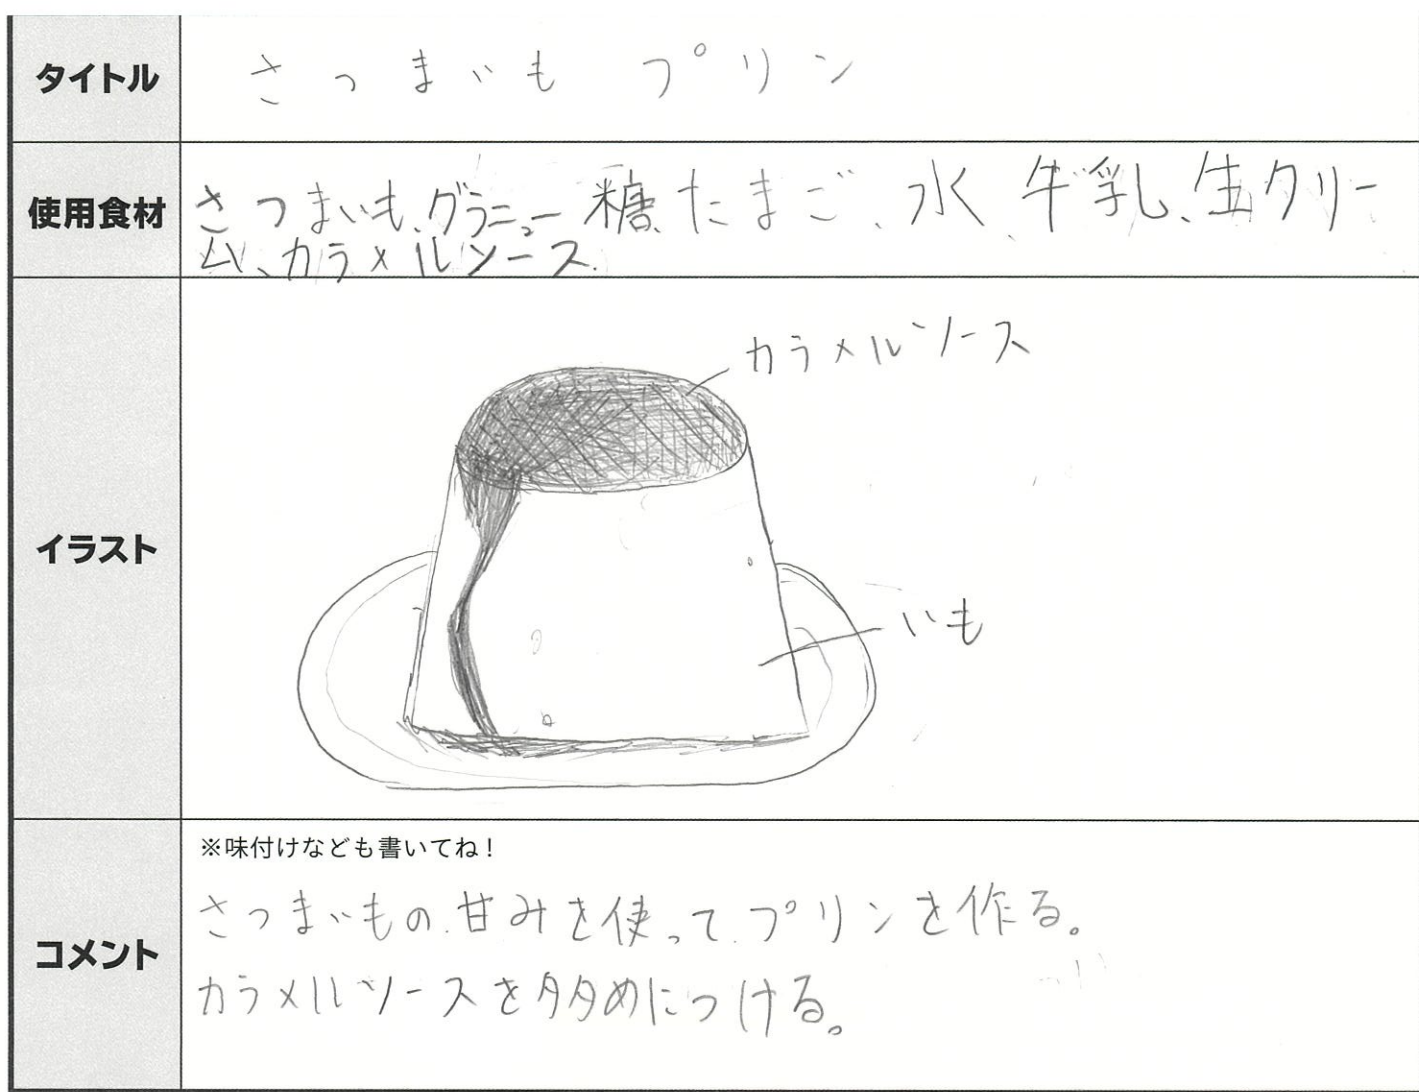 タイトル
さつまいも プリン
使用食材
さつまいも、グラニュー糖、たまご、水、牛乳、生クリー
ム、カラメルソース
イラスト
カラメルソース
いも
コメント
※味付けなども書いてね！
さつまいもの甘みを使ってプリンを作る。
カラメルソースを多めにつける。